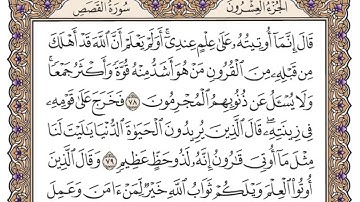 الجزء العشرون سورة القصص
قَالَ إِنَّمَآ أُوتِيتُهُۥ عَلَىٰ عِلْمٍ عِندِىٓ ۚ أَوَلَمْ يَعْلَمْ أَنَّ ٱللَّهَ قَدْ أَهْلَكَ
مِن قَبْلِهِۦ مِنَ ٱلْقُرُونِ مَنْ هُوَ أَشَدُّ مِنْهُ قُوَّةً وَأَكْثَرُ جَمْعًا ۚ
وَلَا يُسْـَٔلُ عَن ذُنُوبِهِمُ ٱلْمُجْرِمُونَ ٧٨ فَخَرَجَ عَلَىٰ قَوْمِهِۦ
فِى زِينَتِهِۦ ۖ قَالَ ٱلَّذِينَ يُرِيدُونَ ٱلْحَيَوٰةَ ٱلدُّنْيَا يَٰلَيْتَ لَنَا
مِثْلَ مَآ أُوتِىَ قَٰرُونُ إِنَّهُۥ لَذُو حَظٍّ عَظِيمٍ ٧٩ وَقَالَ ٱلَّذِينَ
أُوتُوا۟ ٱلْعِلْمَ وَيْلَكُمْ ثَوَابُ ٱللَّهِ خَيْرٌ لِّمَنْ ءَامَنَ وَعَمِلَ